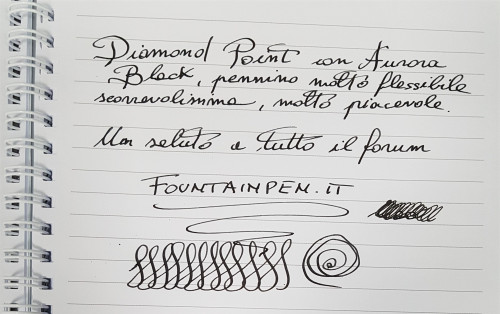 Diamond Point con Aurora
Black, pennino molto flessibile
scorrevolissimo, molto piacevole.
Un saluto a tutto il forum
FOUNTAINPEN.IT